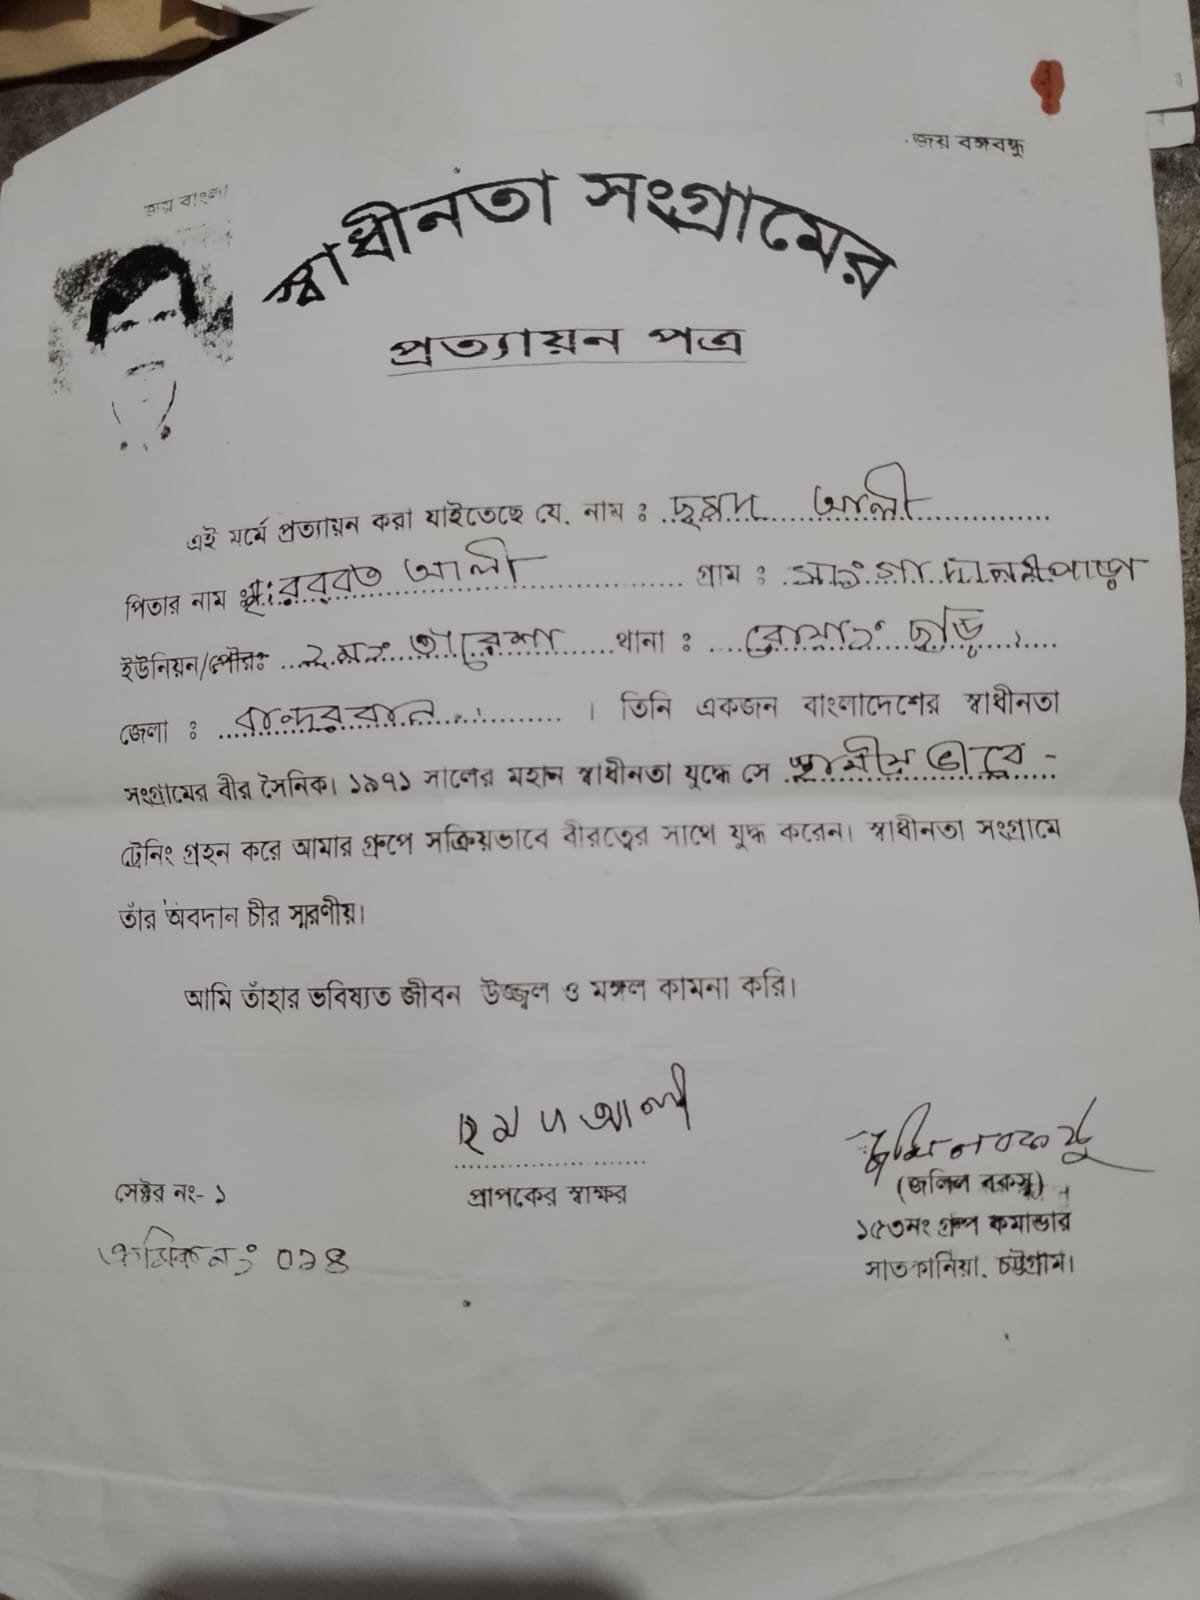 জয় বঙ্গবন্ধু
জয় বাংলা
স্বাধীনতা সংগ্রামের
প্রত্যায়ন পত্র
এই মর্মে প্রত্যায়ন করা যাইতেছে যে, নাম ঃ ছমদ আলী
পিতার নাম ঃ মৃঃ রববত আলী গ্রাম ঃ
ইউনিয়ন/পৌরঃ ২নং তারাশা থানা ঃ রোয়াংছড়ি
জেলা ঃ বান্দরবান । তিনি একজন বাংলাদেশের স্বাধীনতা
সংগ্রামের বীর সৈনিক। ১৯৭১ সালের মহান স্বাধীনতা যুদ্ধে সে স্থানীয় ভাবে -
ট্রেনিং গ্রহন করে আমার গ্রুপে সক্রিয়ভাবে বীরত্বের সাথে যুদ্ধ করেন। স্বাধীনতা সংগ্রামে
তাঁর অবদান চীর স্মরণীয়।
আমি তাঁহার ভবিষ্যত জীবন উজ্জ্বল ও মঙ্গল কামনা করি।
ছমদ আলী
প্রাপকের স্বাক্ষর
সেক্টর নং- ১
ক্রমিক নং ০২৪
জলিল বকসু
(জলিল বকসু)
১৫৩নং গ্রুপ কমান্ডার
সাতকানিয়া, চট্টগ্রাম।